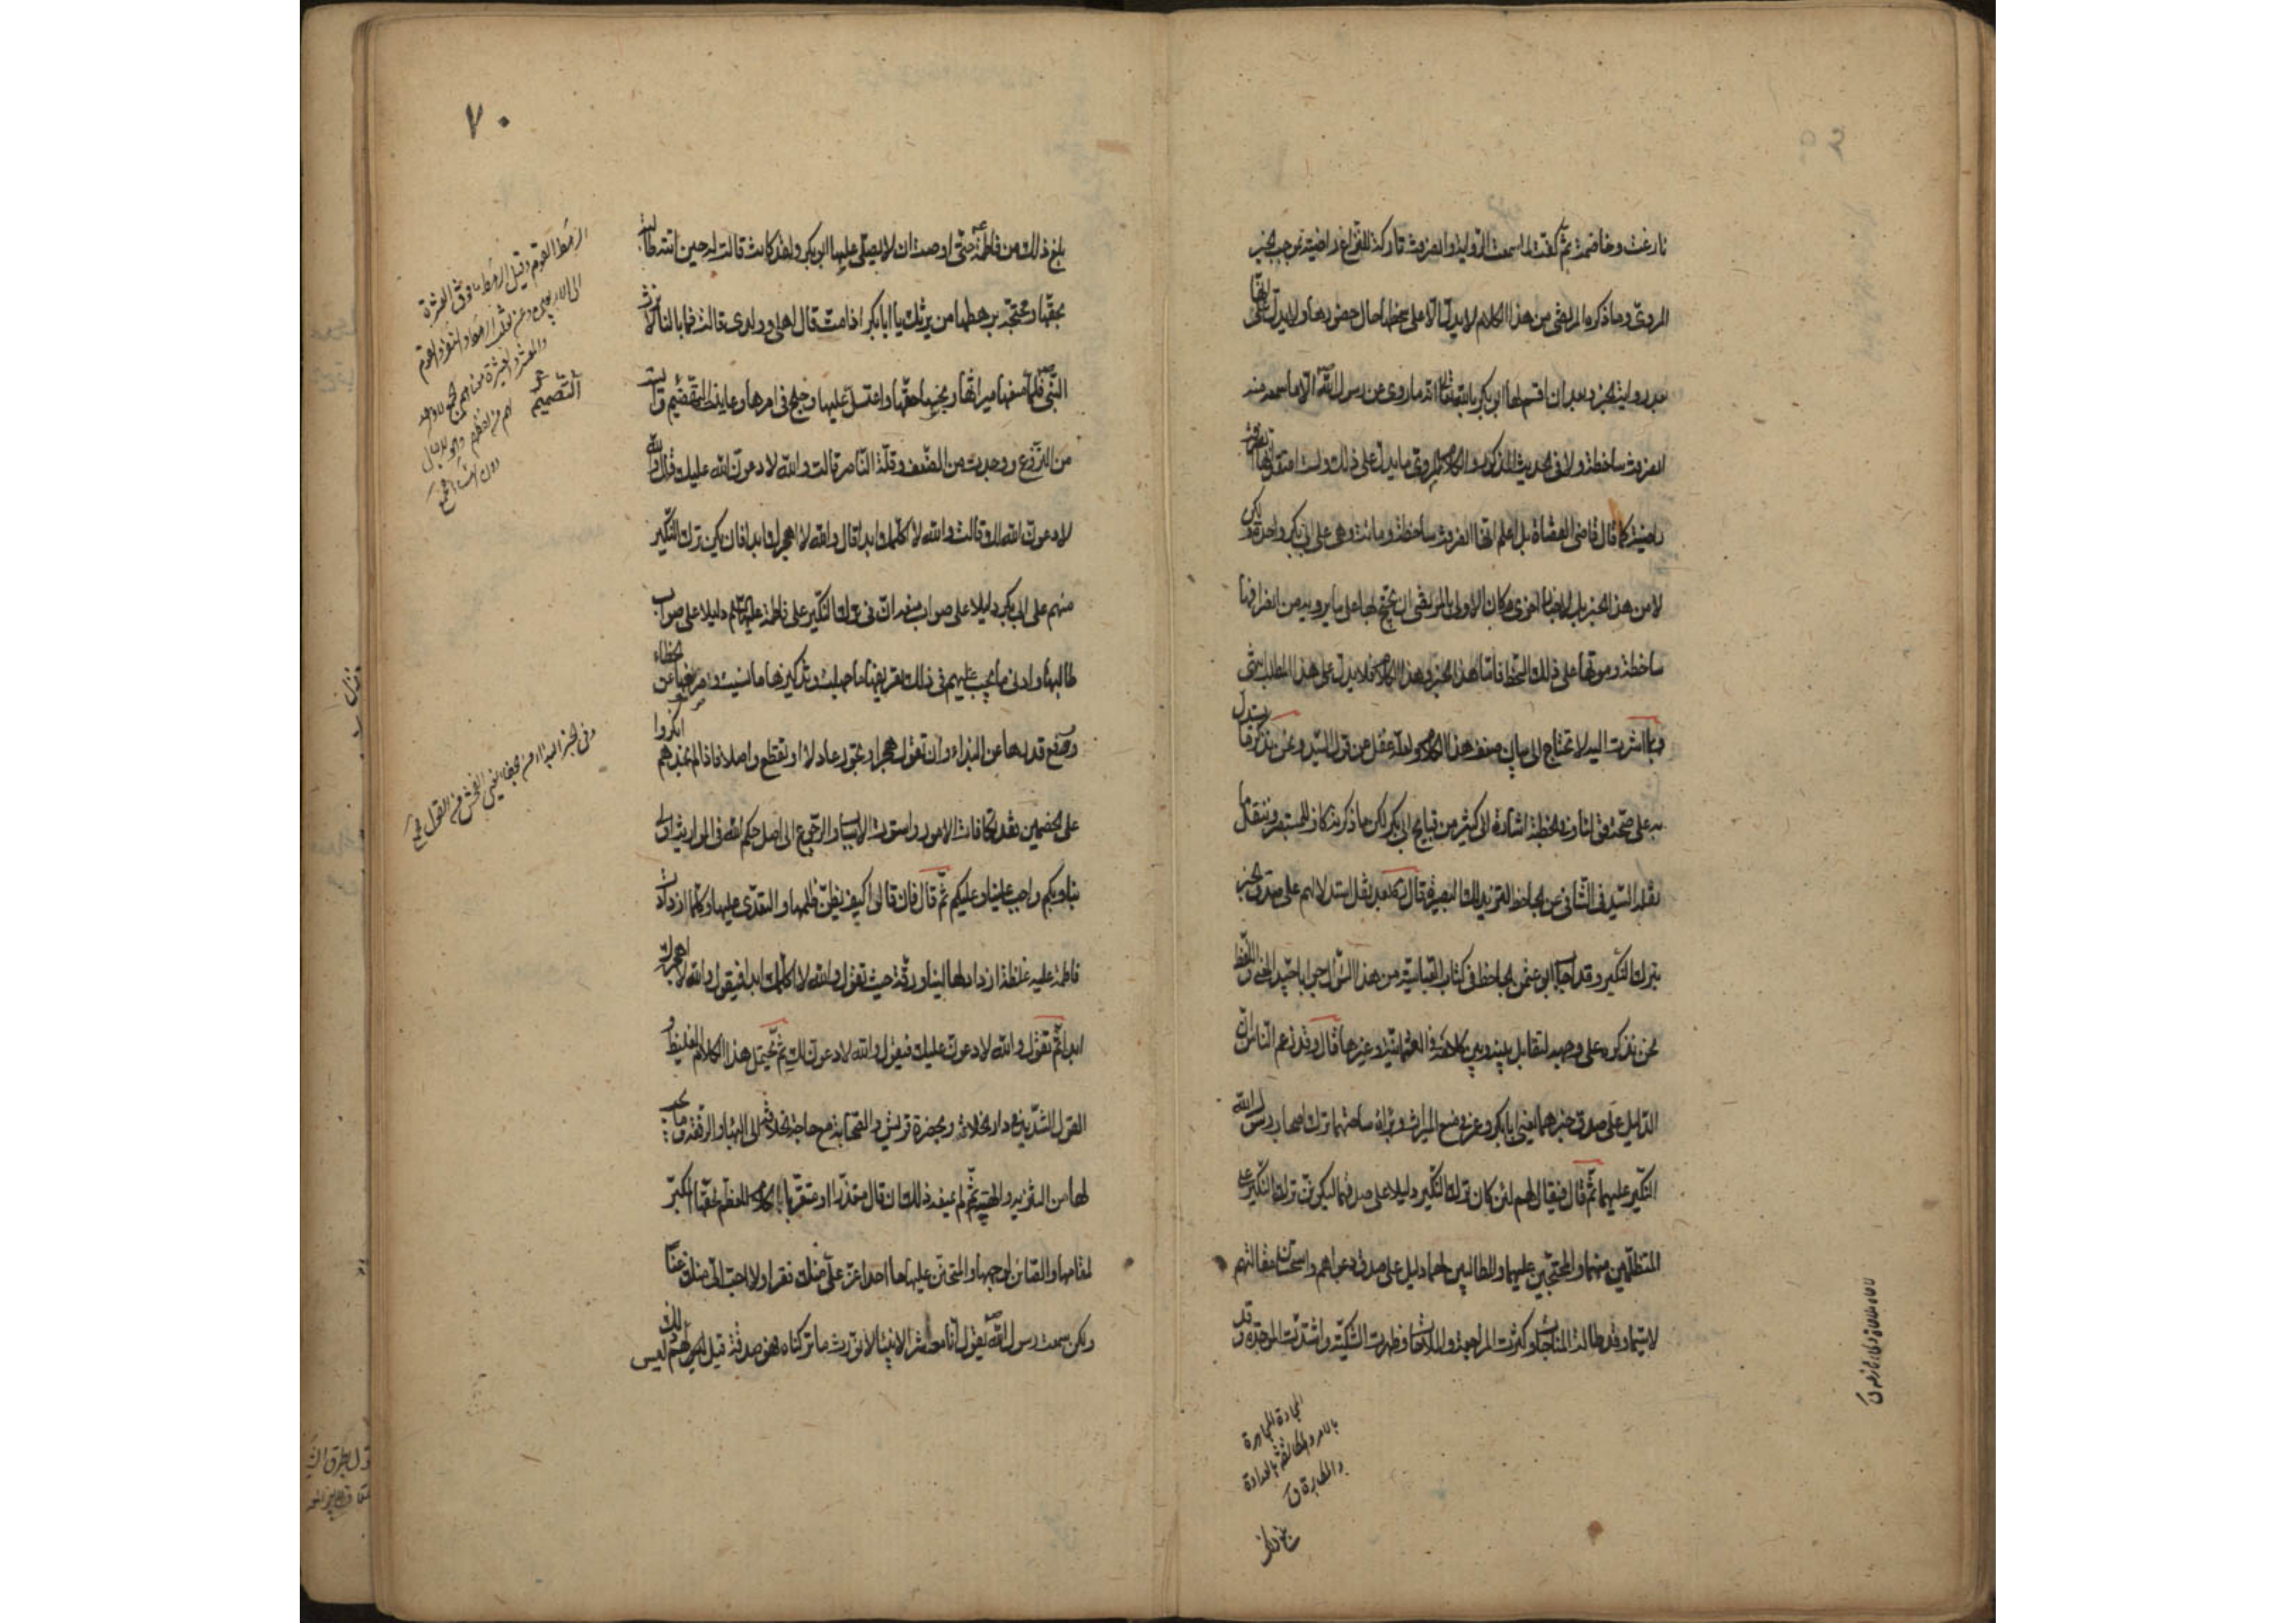 نازعت وخاصمت ثم كفت لما سمعت الرواية وانصرفت تاركة للنزاع راضية بموجب الخبر
المروي وما ذكره المرتضى من هذا الكلام لا يدل الا على سخطها حال حضورها ولا يدل على انها
بعد رواية الخبر وبعد ان اقسم لها ابو بكر بالله تعالى انه ما روى عن رسول الله الا ما سمعه منه
انصرفت ساخطة ولا في الحديث المذكور والكلام المروي ما يدل على ذلك ولست اعتقد انها انصرفت
راضية كما قال قاضي القضاة بل اعلم انها انصرفت ساخطة وماتت وهي على ابي بكر واجدة ولكن
لا من هذا الخبر بل من اخبار اخرى وكان الاولى بالمرتضى ان يحتج بها على ما يرويه من انصرافها
ساخطة وموتها على ذلك السخط فاما هذا الخبر وهذا الكلام فلا يدل على هذا المطلوب انتهى
وبما اشرت اليه لا تحتاج الى بيان ضعف هذا الكلام ولعله غفل من قول السيد ونحن نذكر ما يستدل
به على صحته وفي الخطبة اشارة الى كثير من قبايح ابي بكر لكن ما ذكرته كاف للمستبصر وننقل ما
نقله السيد في الشافي عن الجاحظ لتزيد لك البصيرة قال بعد نقل استدلالهم على صدق الخبر
بترك النكير وقد اجاب ابو عثمن الجاحظ في كتاب العباسية من هذا السؤال جوابا جيد المعنى واللفظ
نحن نذكره على وجهه لتقابل بينه وبين كلامه في العثمانية وغيرها قال وقد زعم الناس ان
الدليل على صدق خبرهما يعني ابا بكر وعمر في منع الميراث وبراءة ساحتهما ترك اصحاب رسول الله
النكير عليهما ثم قال فيقال لهم لئن كان ترك النكير دليلا على صدقهما ليكونن ترك النكير على
المتظلمين منهما والمحتجين عليهما والمطالبين لهما دليل على صدق دعواهم واستحسان مقالتهم
لا سيما وقد طالت المناجاة وكثرت المراجعة والملاحاة وظهرت الشكية واشتدت الموجدة وقد
المطالبة
بالعداوة
٧٠
بلغ ذلك من فاطمة حتى اوصت ان لا يصلي عليها ابو بكر ولقد كانت قالت له حين اتته طالبة
بحقها ومحتجة برهطها من يرثك يا ابا بكر اذا مت قال اهلي وولدي قالت فما بالنا لا نرث
النبي فلما منعها ميراثها وبخسها حقها واعتل عليها وجلح في امرها وعاينت التهضم وايست
من النزوع ووجدت من الضعف وقلة الناصر قالت والله لا دعون الله عليك قال والله
لا دعون الله لك قالت والله لا اكلمك ابدا قال والله لا اهجرك ابدا فان يكن ترك النكير
منهم على ابي بكر دليلا على صواب منعه ان في ترك النكير على فاطمة عليها السلام دليلا على صواب
طالبها وادنى ما يجب عليهم في ذلك تعريفها ما جهلت وتذكيرها ما نسيت وصرفها عن الخطاء
ورفع قدرها عن البذاء وان تقول هجرا او تجور عادلا او تقطع واصلا فاذا لم نجدهم انكروا
على الخصمين فقد تكافأت الامور واستوت الاسباب والرجوع الى اصل حكم الله في المواريث اولى
بنا وبكم واجب علينا وعليكم ثم قال فان قالوا كيف يظن ظلمها والتعدي عليها وكلما ازدادت
فاطمة عليه غلظة ازداد لها لينا ورقة حيث تقول والله لا اكلمك ابدا فيقول والله لا اهجرك
ابدا ثم تقول والله لا دعون عليك فيقول والله لا دعون لك ثم يحتمل هذا الكلام الغليظ و
القول الشديد في دار الخلافة وبحضرة قريش والصحابة مع حاجة الخلافة الى البهاء والرفعة وما يجب
لها من التنزيه والهيبة ثم لم يمنعه ذلك ان قال معتذرا او متقربا كلام المعظم لحقها المكبر
لمقامها والصائن لوجهها والمتحنن عليها ما احد اعز علي منك فقرا ولا احب الي منك غنا
ولكن سمعت رسول الله يقول انا معاشر الانبياء لا نورث ما تركناه فهو صدقة قيل لهم ليس ذلك
الرهط القوم وقيل الرهط ما فوق العشرة
التصميم